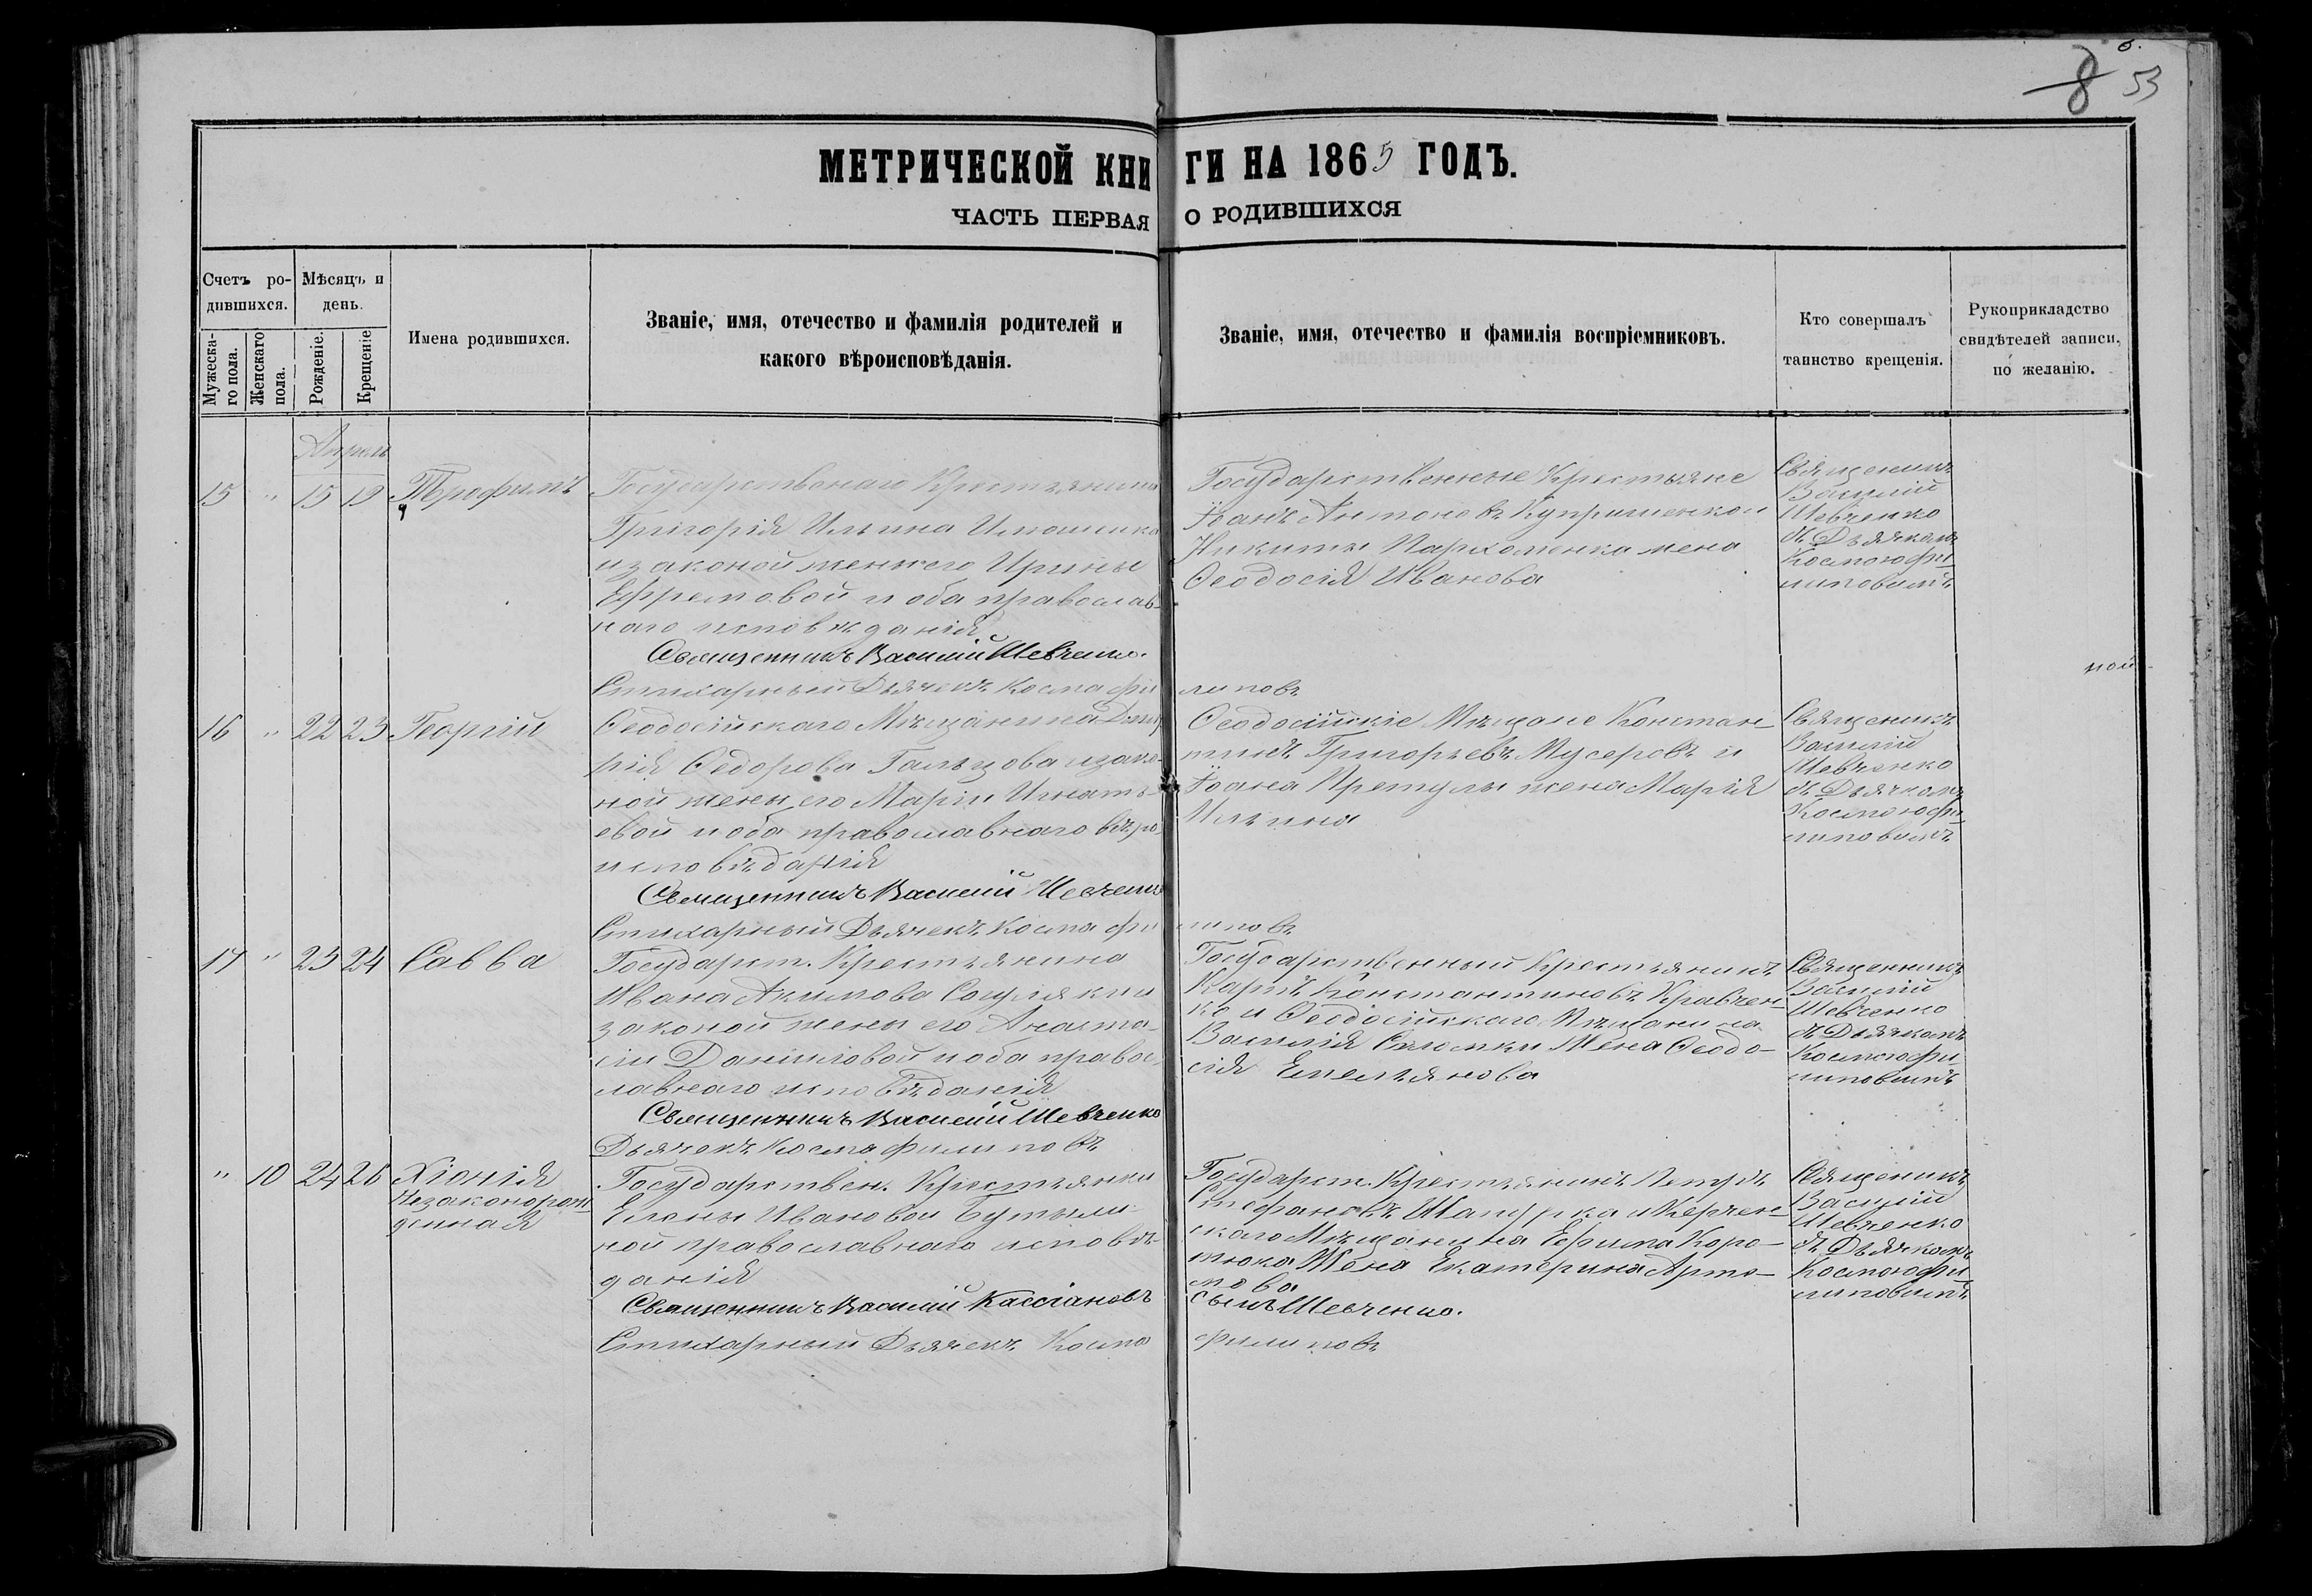 8 53
МЕТРИЧЕСКОЙ КНИГИ НА 1865 ГОДЪ.
ЧАСТЬ ПЕРВАЯ О РОДИВШИХСЯ
Счетъ ро-
дившихся.
Мужеска-
го пола.
Женскаго
пола.
Мѣсяцъ и
день.
Рожденіе.
Крещеніе
Имена родившихся.
Званіе, имя, отечество и фамилія родителей и
какого вѣроисповѣданія.
Званіе, имя, отечество и фамилія воспріемниковъ.
Кто совершалъ
таинство крещенія.
Рукоприкладство
свидѣтелей записи,
по желанію.
Апрель
15 " 15 19 Трофимъ
Государственаго Крестьянина
Григорія Ильина
изаконой жены его Ирины
Ефремовой и оба православ-
наго исповѣданія
Священникъ Василій Шевченко.
Стихарный Дьячекъ Косма Филиповъ
Государственные Крестьяне
Іоанъ Антоновъ Куприченко и
Никиты Пархоменка жена
Ѳеодосія Иванова
Священикъ
Василій
Шевченко
съ Дьячкомъ
Космою Фи
липовымъ
16 " 22 23 Георгій
Ѳеодосійскаго Мѣщанина Дмит
рія Ѳедорова Гальцова изако-
ной жены его Маріи Игнать-
евой и оба православнаго вѣро
исповѣданія
Священникъ Василій Шевченко
Стихарный Дьячекъ Косма Филиповъ
Ѳеодосійскіе Мѣщане Констан-
тинъ Григорьевъ Мусеровъ и
Іоана Претулы жена Марія
Ильина
ной
Священикъ
Василій
Шевченко
съ Дьячкомъ
Космою Фи
липовымъ
17 " 23 24 Савва
Государст. Крестьянина
Ивана Акимова
законой жены его Анаста-
сіи Даниловой и оба правос-
лавнаго исповѣданія
Священникъ Василій Шевченко
Дьячекъ Косма Филиповъ
Государственный Крестьянинъ
Карпъ Константиновъ Кравчен-
ко и Ѳеодосійскаго Мѣщанина
Василія жена Ѳеодо-
сія Емельянова
Священникъ
Василій
Шевченко
съ Дьячкомъ
Космою Фи
липовымъ
" 10 24 26 Хіонія
Незаконорож
денная
Государствен. Крестьянки
Елены Ивановой Бутыли-
ной православнаго исповѣ-
данія
Священникъ Василій Кассіановъ
сынъ Шевченко.
Стихарный Дьячекъ Косма Филиповъ
Государст. Крестьянинъ Петръ
Стефановъ Шапурка и Керчен-
скаго Мѣщанина Ефима Коро-
тюка Жена Екатерина Арте-
мова
Священикъ
Василій
Шевченко
съ Дьячкомъ
Космою Фи
липовымъ